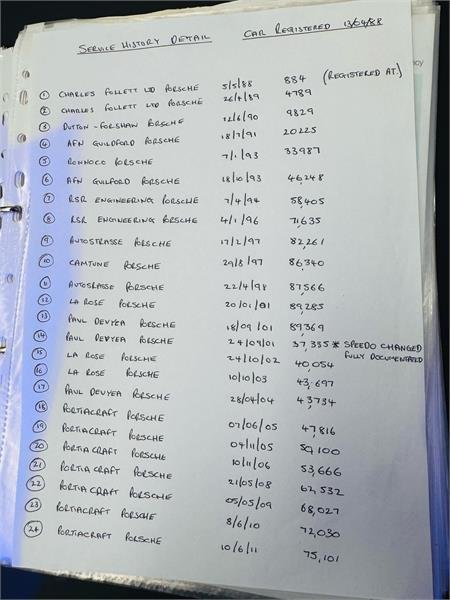 SERVICE HISTORY DETAIL CAR REGISTERED 13/04/88
(REGISTERED AT.)
① CHARLES FOLLETT LTD PORSCHE 5/5/88 884
② CHARLES FOLLETT LTD PORSCHE 26/4/89 4789
③ DUTTON-FORSHAW PORSCHE 12/6/90 9829
④ AFN GUILDFORD PORSCHE 18/7/91 20225
⑤ RONNOCO PORSCHE 7/1/93 33987
⑥ AFN GUILFORD PORSCHE 18/10/93 46,248
⑦ RSR ENGINEERING PORSCHE 7/4/94 58,405
⑧ RSR ENGINEERING PORSCHE 4/1/96 71,635
⑨ AUTOSTRASSE PORSCHE 17/2/97 82,261
⑩ CAMTUNE PORSCHE 29/8/97 86,340
⑪ AUTOSRASSE PORSCHE 22/4/98 87,566
⑫ LA ROSE PORSCHE 20/01/ 89,285
⑬ PAUL DEVYEA PORSCHE 18/09/01 89,369
⑭ PAUL DEVYEA PORSCHE 24/09/01 37,335 * SPEEDO CHANGED
FULLY DOCUMENTED
⑮ LA ROSE PORSCHE 24/10/02 40,054
⑯ LA ROSE PORSCHE 10/10/03 43,697
⑰ PAUL DEVYEA PORSCHE 28/04/04 43,734
⑱ PORTIACRAFT PORSCHE 07/06/05 47,816
⑲ PORTIACRAFT PORSCHE 04/11/05 50,100
⑳ PORTIACRAFT PORSCHE 10/11/06 53,666
㉑ PORTIACRAFT PORSCHE 21/05/08 62,532
㉒ PORTIACRAFT PORSCHE 05/05/09 68,027
㉓ PORTIACRAFT PORSCHE 8/6/10 72,030
㉔ PORTIACRAFT PORSCHE 10/6/11 75,101